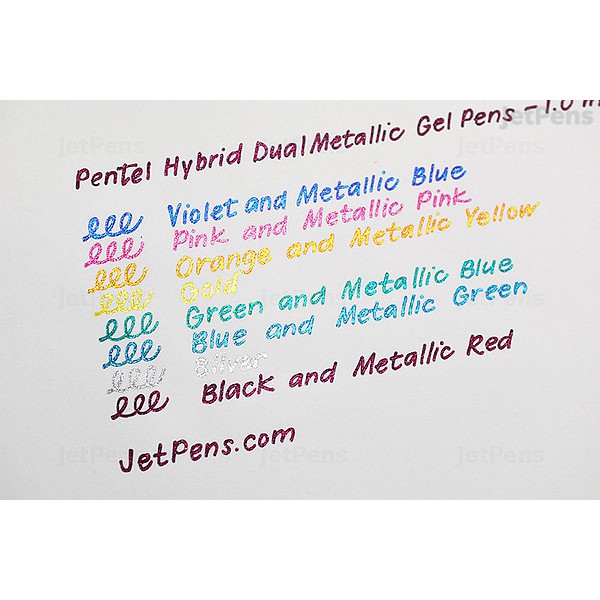 Pentel Hybrid Dual Metallic Gel Pens - 1.0 m
Violet and Metallic Blue
Pink and Metallic Pink
Orange and Metallic Yellow
Gold
Green and Metallic Blue
Blue and Metallic Green
Silver
Black and Metallic Red
JetPens.com
jetPens